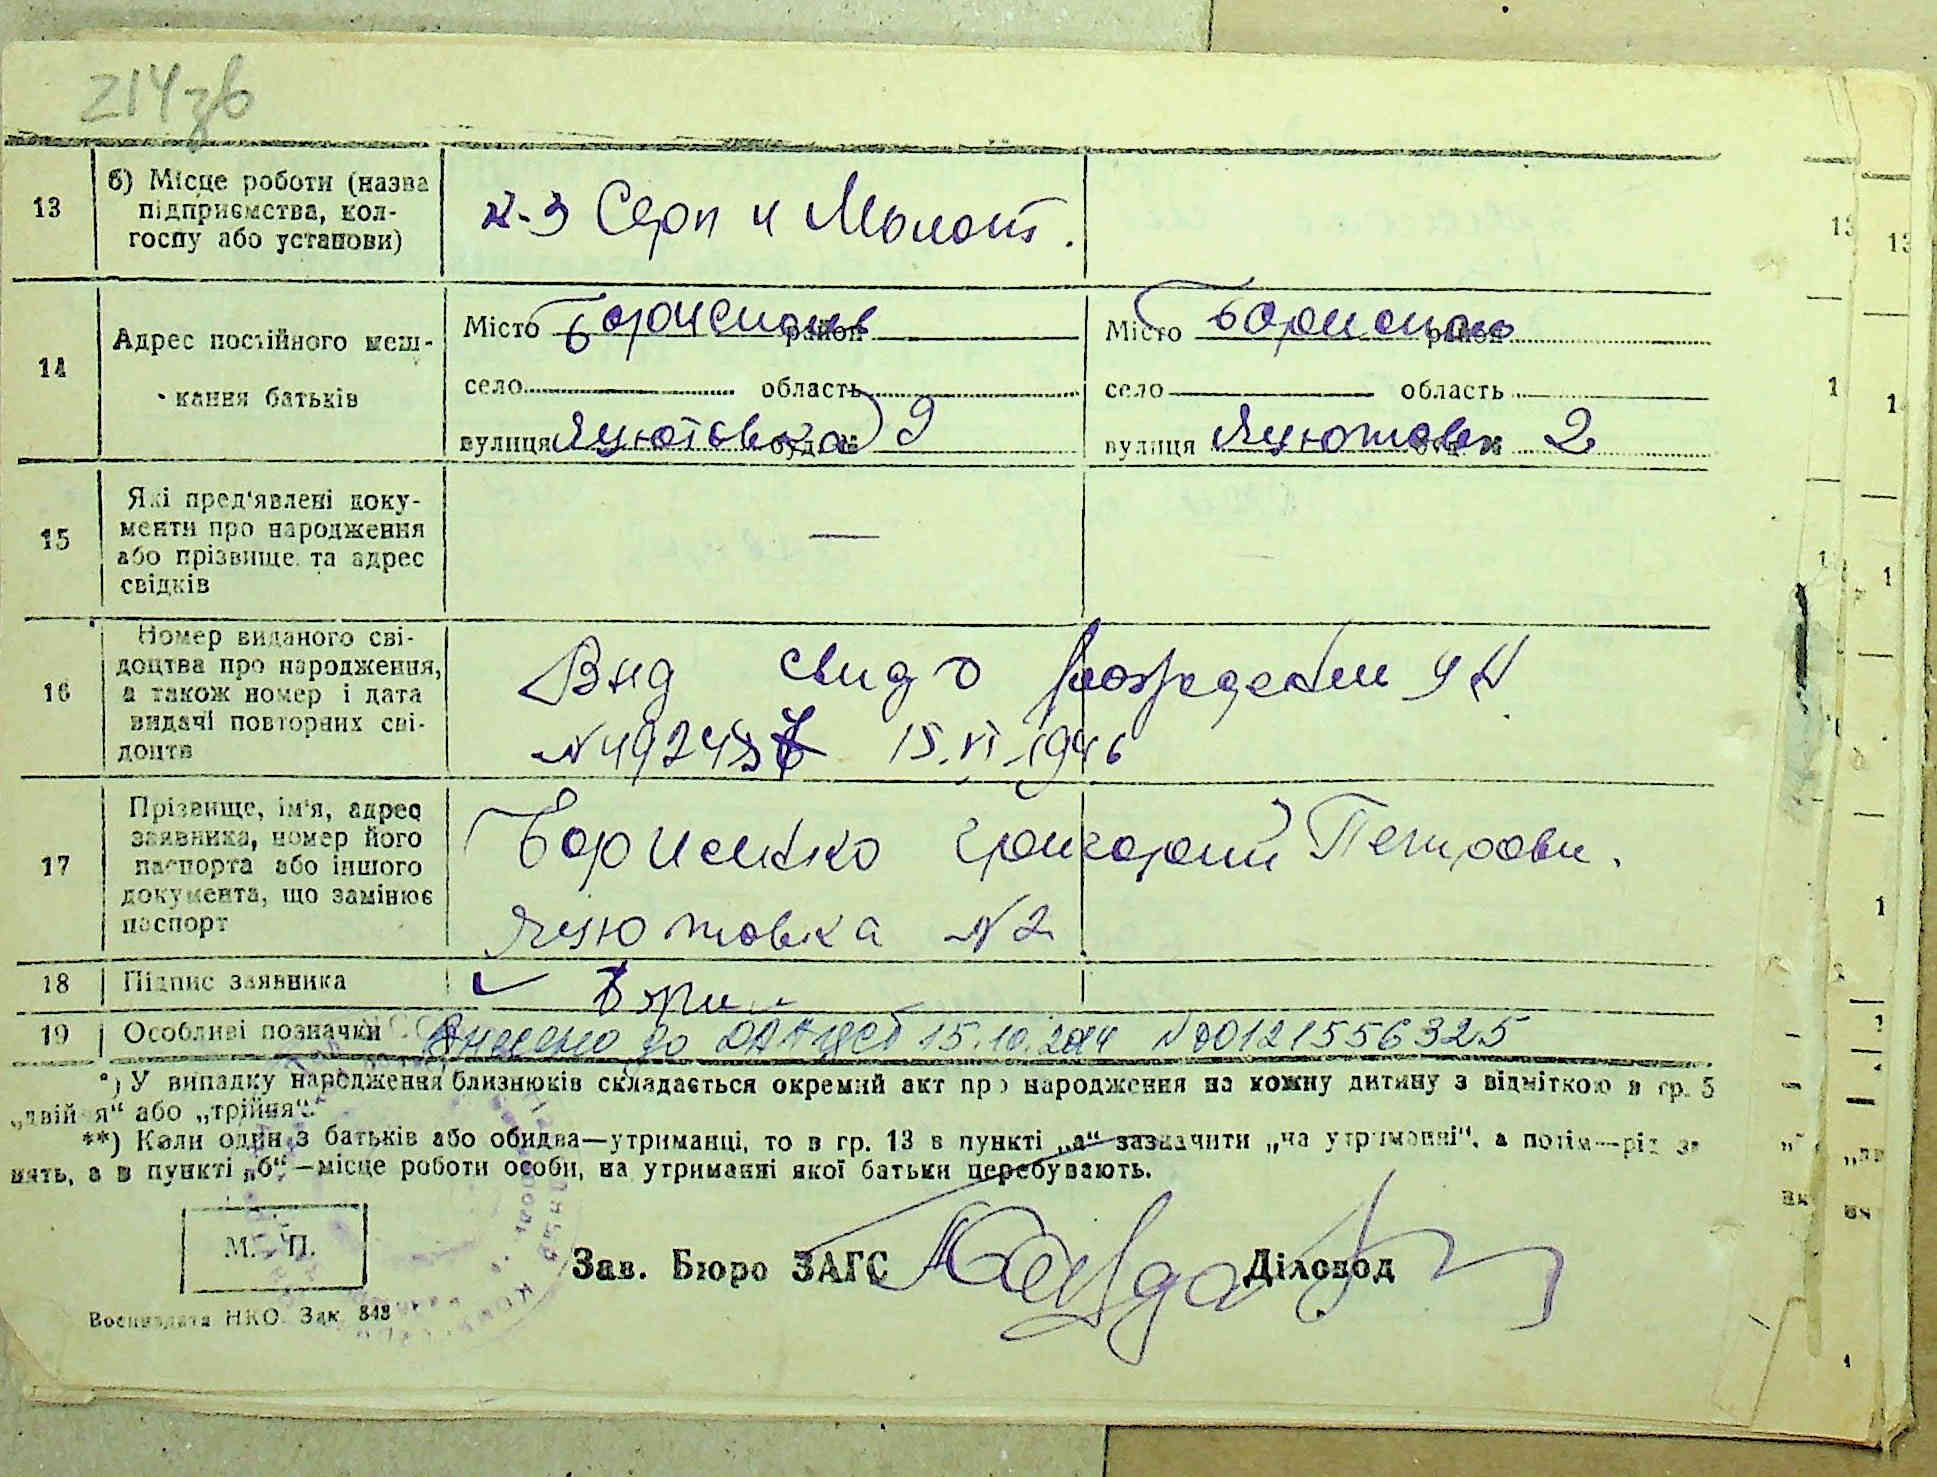 214 зв
13 б) Місце роботи (назва підприємства, колгоспу або установи) к-з Серп и Молот.
14 Адрес постійного мешкання батьків
Місто Борисполь район Місто Борисполь район
село область село область
вулиця Яцютовка буд 9 вулиця Яцютовка 2
15 Які пред'явлені доку-
менти про народження
або прізвище та адрес
свідків —
16 Номер виданого сві-
доцтва про народження,
а також номер і дата
видачі повторних сві-
доцтв
Вид свид о рождении УН
N 15.VI.1946
17 Прізвище, ім'я, адрес
заявника, номер його
паспорта або іншого
документа, що замінює
паспорт
Борисенко Григорий Петрови.
Яцютовка N 2
18 Підпис заявника
19 Особливі позначки Внесено до 15.10.2014 N 00121556325
*) У випадку народження близнюків складається окремий акт про народження на кожну дитину з відміткою в гр. 5
„двійня“ або „трійня“.
**) Коли один з батьків або обидва—утриманці, то в гр. 13 в пункті „а“ зазначити „на утриманні“, а потім—рід за
нять, а в пункті „б“—місце роботи особи, на утриманні якої батьки перебувають.
М. П.
Зав. Бюро ЗАГС Діловод
Воениздата НКО. Зак 848